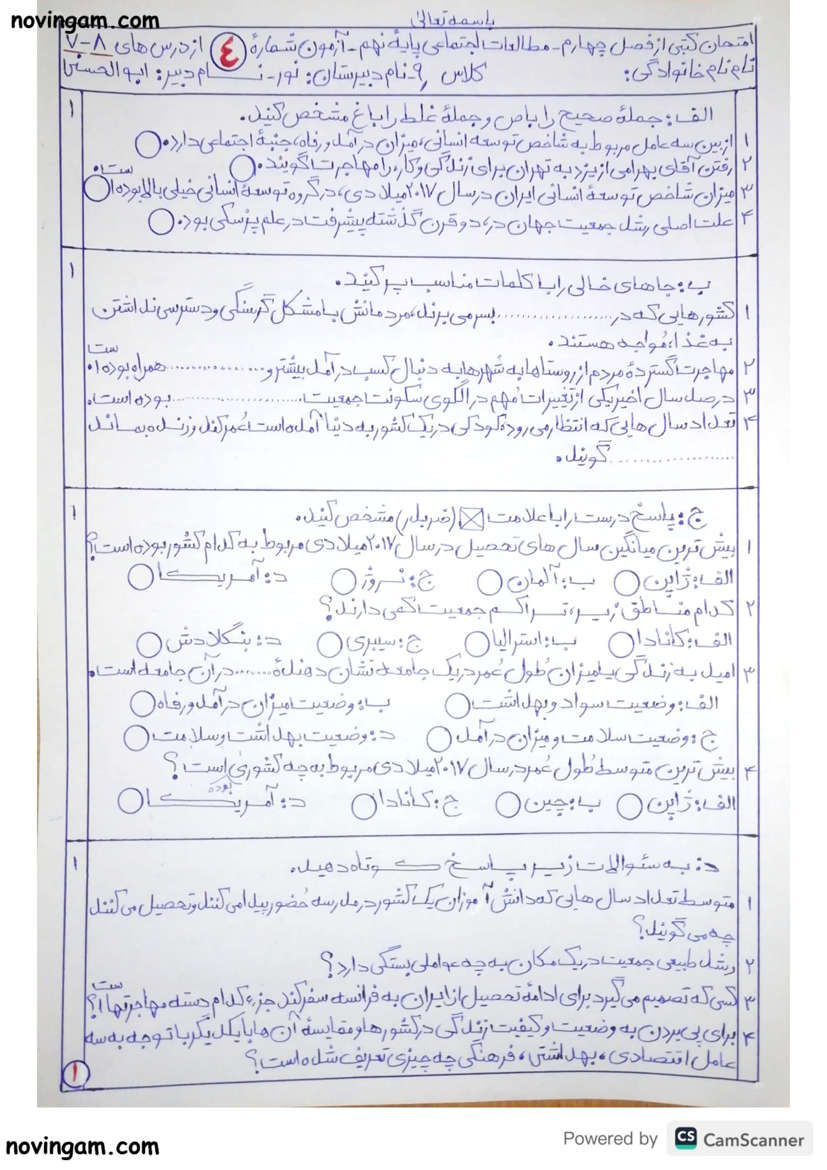 novingam.com
باسمه تعالیٰ
امتحان کتبی از فصل چهارم - مطالعات اجتماعی پایهٔ نهم - آزمون شمارهٔ ۴ از درس های ۸-۷
نام نام خانوادگی: کلاس ۹ نام دبیرستان: نور - نام دبیر: ابوالحسنی
۱ الف: جملهٔ صحیح را با ص و جملهٔ غلط را با غ مشخص کنید.
۱ از بین سه عامل مربوط به شاخص توسعه انسانی، میزان درآمد و رفاه، جنبهٔ اجتماعی دارد.
۲ رفتن آقای بهرامی از یزد به تهران برای زندگی و کار، را مهاجرت گویند.
۳ میزان شاخص توسعهٔ انسانی ایران در سال ۲۰۱۷ میلادی، در گروه توسعهٔ انسانی خیلی بالا بوده است
۴ علت اصلی رشد جمعیت جهان در، دو قرن گذشته پیشرفت در علم پزشکی بود.
۱ ب: جاهای خالی را با کلمات مناسب پر کنید.
۱ کشورهایی که در .................... بسر می برند، مردمانش با مشکل گرسنگی و دسترسی نداشتن
به غذا، مُواجه هستند.
۲ مهاجرت گستردهٔ مردم از روستاها به شهرها به دنیال کسب درآمد بیشتر و ............... همراه بوده است.
۳ در صد سال اخیر یکی از تغییرات مُهم در الگوی سکونت جمعیت .................... بوده است.
۴ تعداد سال هایی که انتظار می رود کودکی در یک کشور به دنیا آمده است عُمر کند و زنده بماند
.................... گویند.
۱ ج: پاسخ درست را با علامت ☒ (ضربدر) مشخص کنید.
۱ بیش ترین میانگین سال های تحصیل در سال ۲۰۱۷ میلادی مربوط به کدام کشور بوده است؟
الف: ژاپن ب: آلمان ج: نروژ د: آمریکا
۲ کدام مناطق زیر، تراکم جمعیت کمی دارند؟
الف: کانادا ب: استرالیا ج: سیبری د: بنگلادش
۳ امید به زندگی یا میزان طُول عُمر در یک جامعه نشان دهندهٔ ....... در آن جامعه است.
الف: وضعیت سواد و بهداشت ب: وضعیت میزان درآمد و رفاه
ج: وضعیت سلامت و میزان درآمد د: وضعیت بهداشت و سلامت
۴ بیش ترین متوسط طُول عُمر در سال ۲۰۱۷ میلادی مربوط به چه کشوری بوده است؟
الف: ژاپن ب: چین ج: کانادا د: آمریکا
۱ د: به سئوالات زیر پاسخ کوتاه دهید.
۱ متوسط تعداد سال هایی که دانش آموزان یک کشور در مدرسه حُضور پیدا می کنند و تحصیل می کنند
چه می گویند؟
۲ رشد طبیعی جمعیت در یک مکان به چه عواملی بستگی دارد؟
۳ کسی که تصمیم می گیرد برای ادامهٔ تحصیل از ایران به فرانسه سفر کند جزء کدام دسته مهاجرتها است؟
۴ برای پی بردن به وضعیت و کیفیت زندگی در کشورها و مقایسهٔ آن ها با یکدیگر با توجه به سه
عامل اقتصادی، بهداشتی، فرهنگی چه چیزی تعریف شده است؟
۱
Powered by CS CamScanner
novingam.com